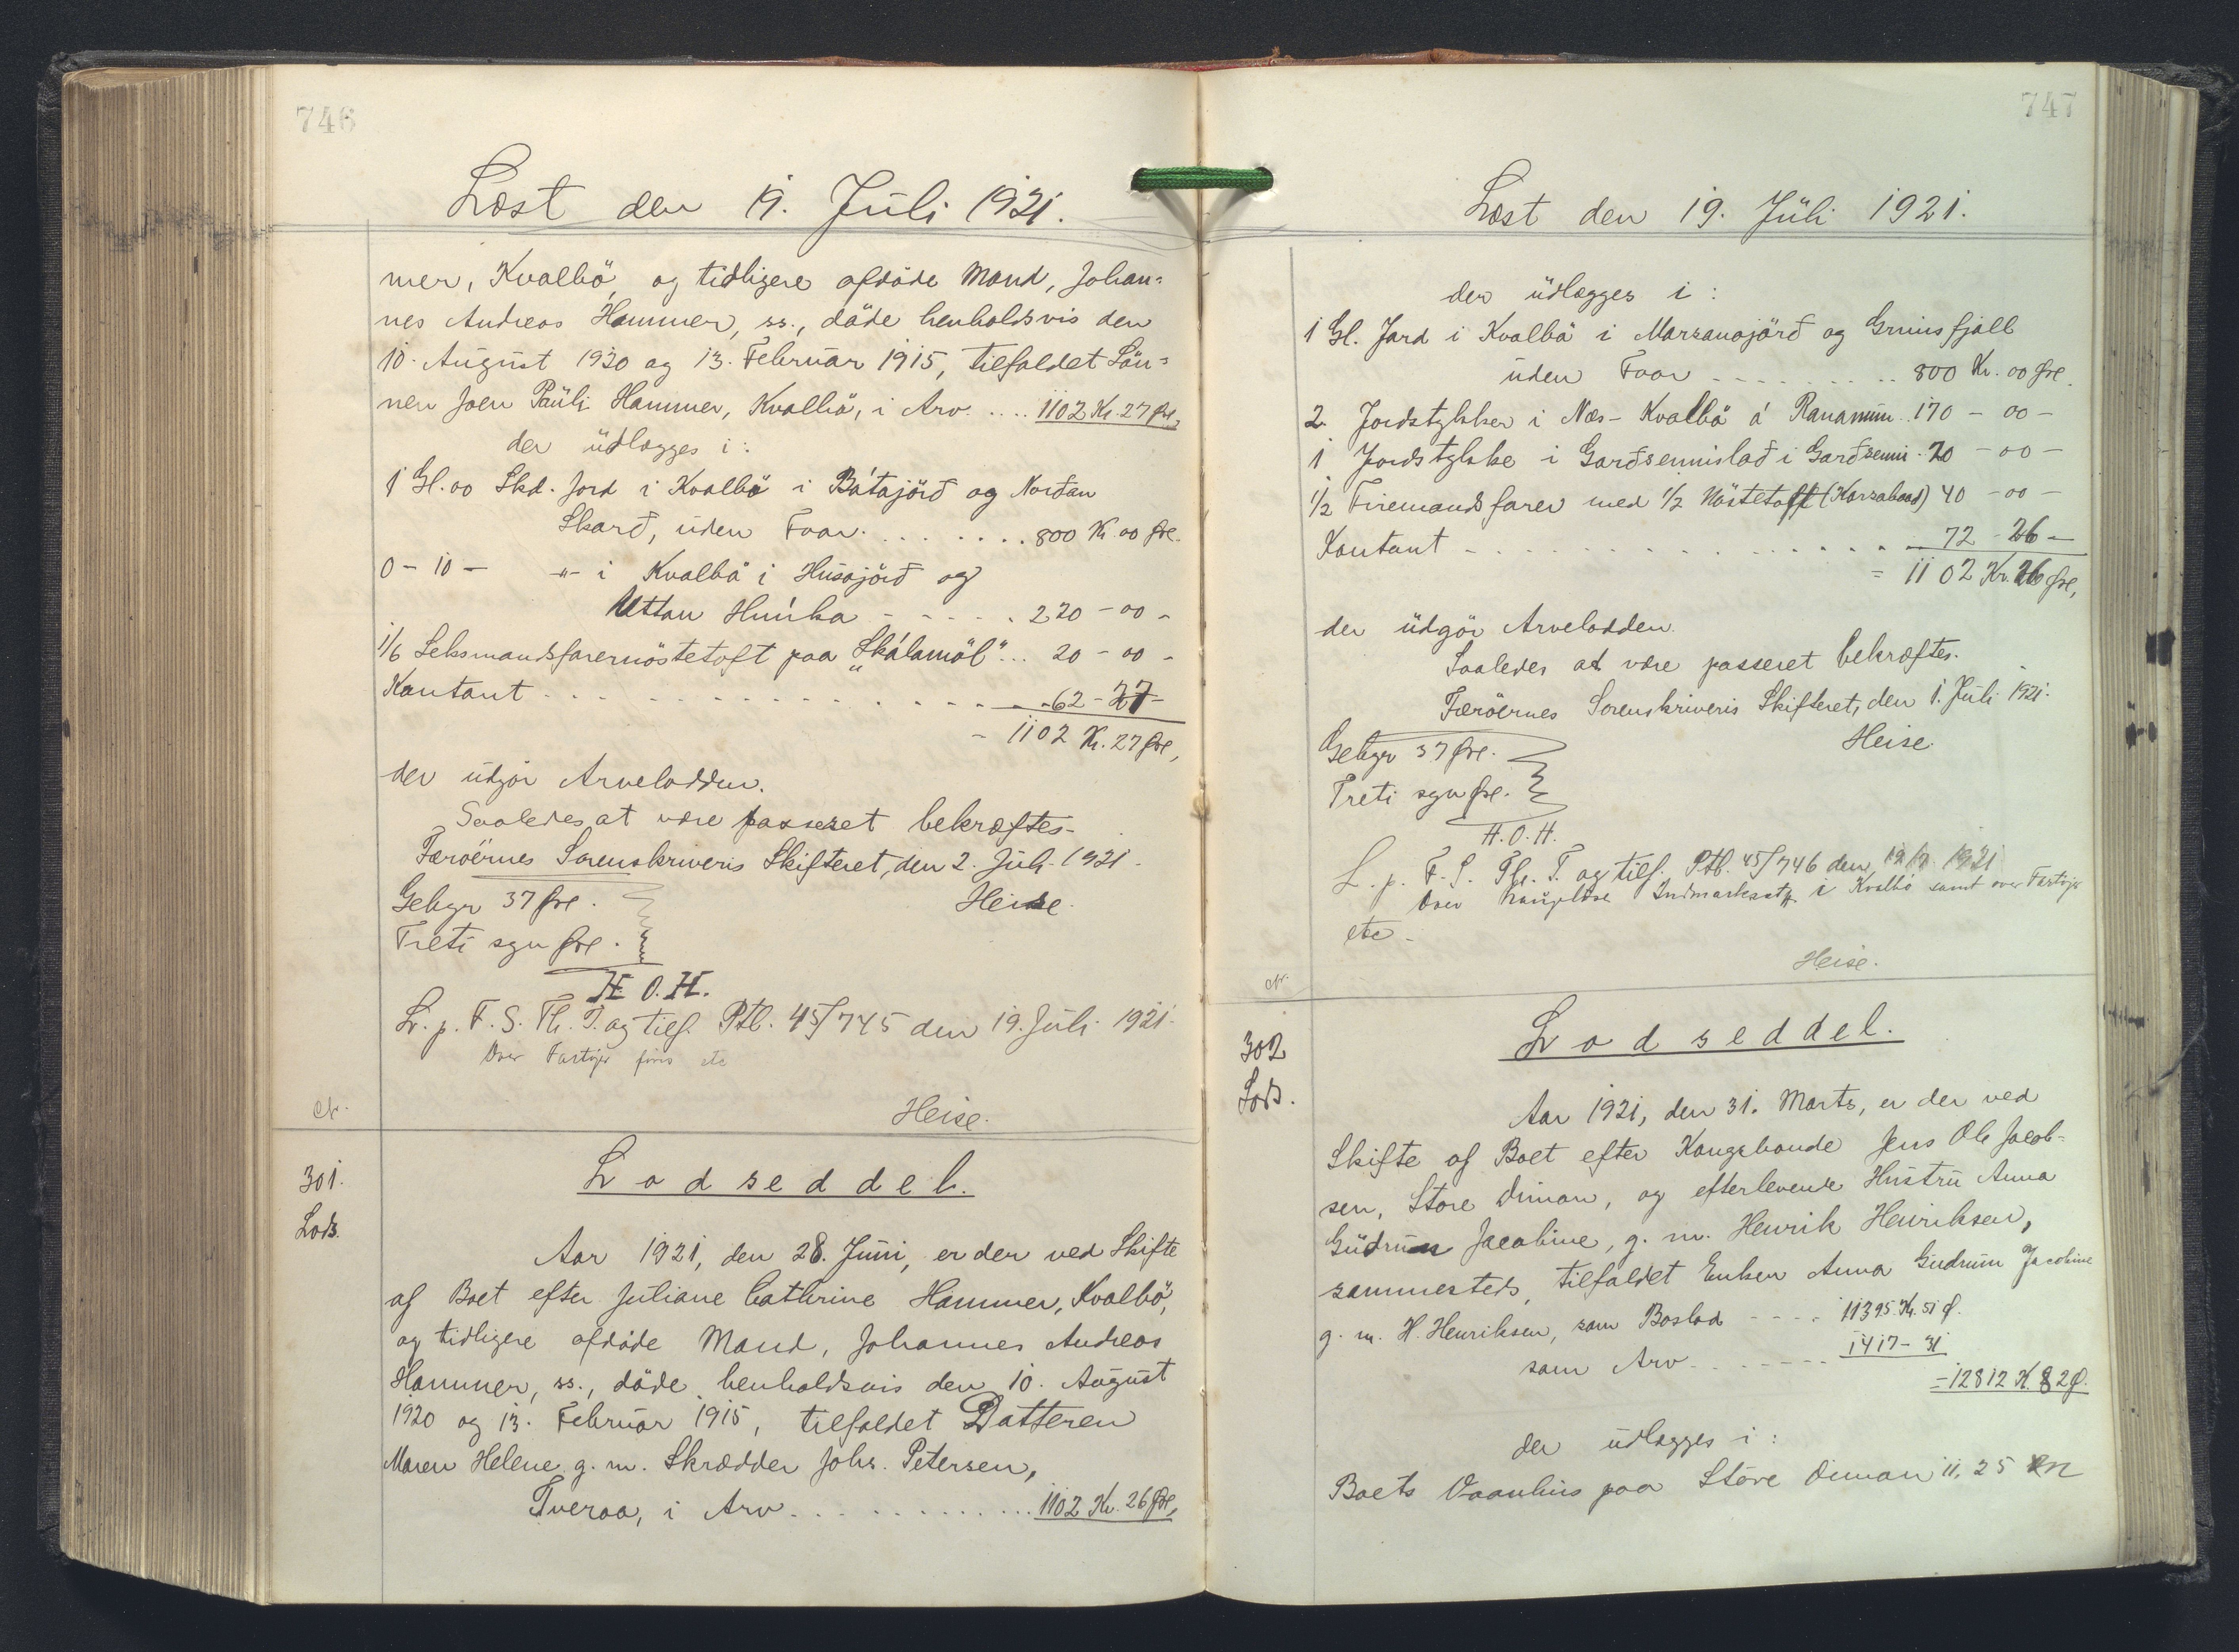 746
Læst den 19. Júli 1921.
mer, Kvalbö, og tidligere afdöde Mand, Johan=
nes Andreas Hammer, ss., döde henholdsvis den
10. August 1920 og 13. Februar 1915, tilfaldet Sön=
nen Joen Pauli Hammer, Kvalbö, i Arv .... 1102 Kr. 27 Øre,
der udlægges i:
1 Gl. 00 Skd. Jord i Kvalbö i Bátajörð og Norðan
Skarð, uden Faar. . . . . . . . 800 Kr. 00 Øre.
0 - 10 - -"- i Kvalbö i Húsajörð og
Uttan Humka - - - - . 220 - 00 -
1/6 Seksmandsfarernöstetoft paa "Skálamöl"... 20 - 00 -
Kontant . . . . . . . . . . 62 - 27 -
- 1102 Kr. 27 Øre,
der udgör Arvelodden.
Saaledes at være passeret bekræftes.
Færöernes Sorenskriveris Skifteret, den 2. Juli 1921.
Gebyr 37 Øre. Heise.
Treti syn Øre.
H. O. H.
L. p. F. S. Th. T. og tilf. Ptl. 45/745 den 19. Juli 1921.
Over Fartöjer etc
Heise.
301.
Lods.
Lodseddel.
Aar 1921, den 28. Juni, er der ved Skifte
af Boet efter Juliane Cathrine Hammer, Kvalbö,
og tidligere afdöde Mand, Johannes Andreas
Hammer, ss., döde henholdsvis den 10. August
1920 og 13. Februar 1915, tilfaldet Datteren
Maren Helene g. m. Skrædder Johs. Petersen,
Tveraa, i Arv . . . . . . . . . 1102 Kr. 26 Øre,
747
Læst den 19. Júli 1921.
der udlægges i:
1 Gl. Jord i Kvalbö i Marsanajörð og Grimsfjall
uden Faar . . . . . . . . 800 Kr. 00 Øre.
2. Jordstykker i Nes-Kvalbö á Ranamun 170 - 00 -
1 Jordstykke i Garðsennislað i Garðsenni . 20 - 00 -
1/2 Firemandsfarer med 1/2 Nöstetoft (Karsabaad) 40 - 00 -
Kontant . . . . . . . . . . 72 - 26 -
= 1102 Kr. 26 Øre,
der udgör Arvelodden.
Saaledes at være passeret bekræftes.
Færöernes Sorenskriveris Skifteret, den 1. Juli 1921.
Gebyr 37 Øre. Heise.
Treti syn Øre.
H. O. H.
L. p. F. S. Th. T. og tilf. Ptl. 45/746 den 19/7 1921
Over Indmarksstk. i Kvalbö samt over Fartöjer
etc.
Heise.
302
Lods.
Lodseddel.
Aar 1921, den 31. Marts, er der ved
Skifte af Boet efter Kongsbonde Jens Ole Jacob=
sen, Store Dimon, og efterlevende Hustru Anna
Gudrun Jacobine, g. m. Henrik Henriksen,
sammesteds, tilfaldet Enken Anna Gudrun Jacobine
g. m. H. Henriksen, som Boslod - - - . 11395 Kr. 51 Ø.
som Arv . . . . . . 1417 - 31
= 12812 K 82 Ø.
der udlægges i:
Boets Vaanhus paa Store Dimon 11,25 Kr